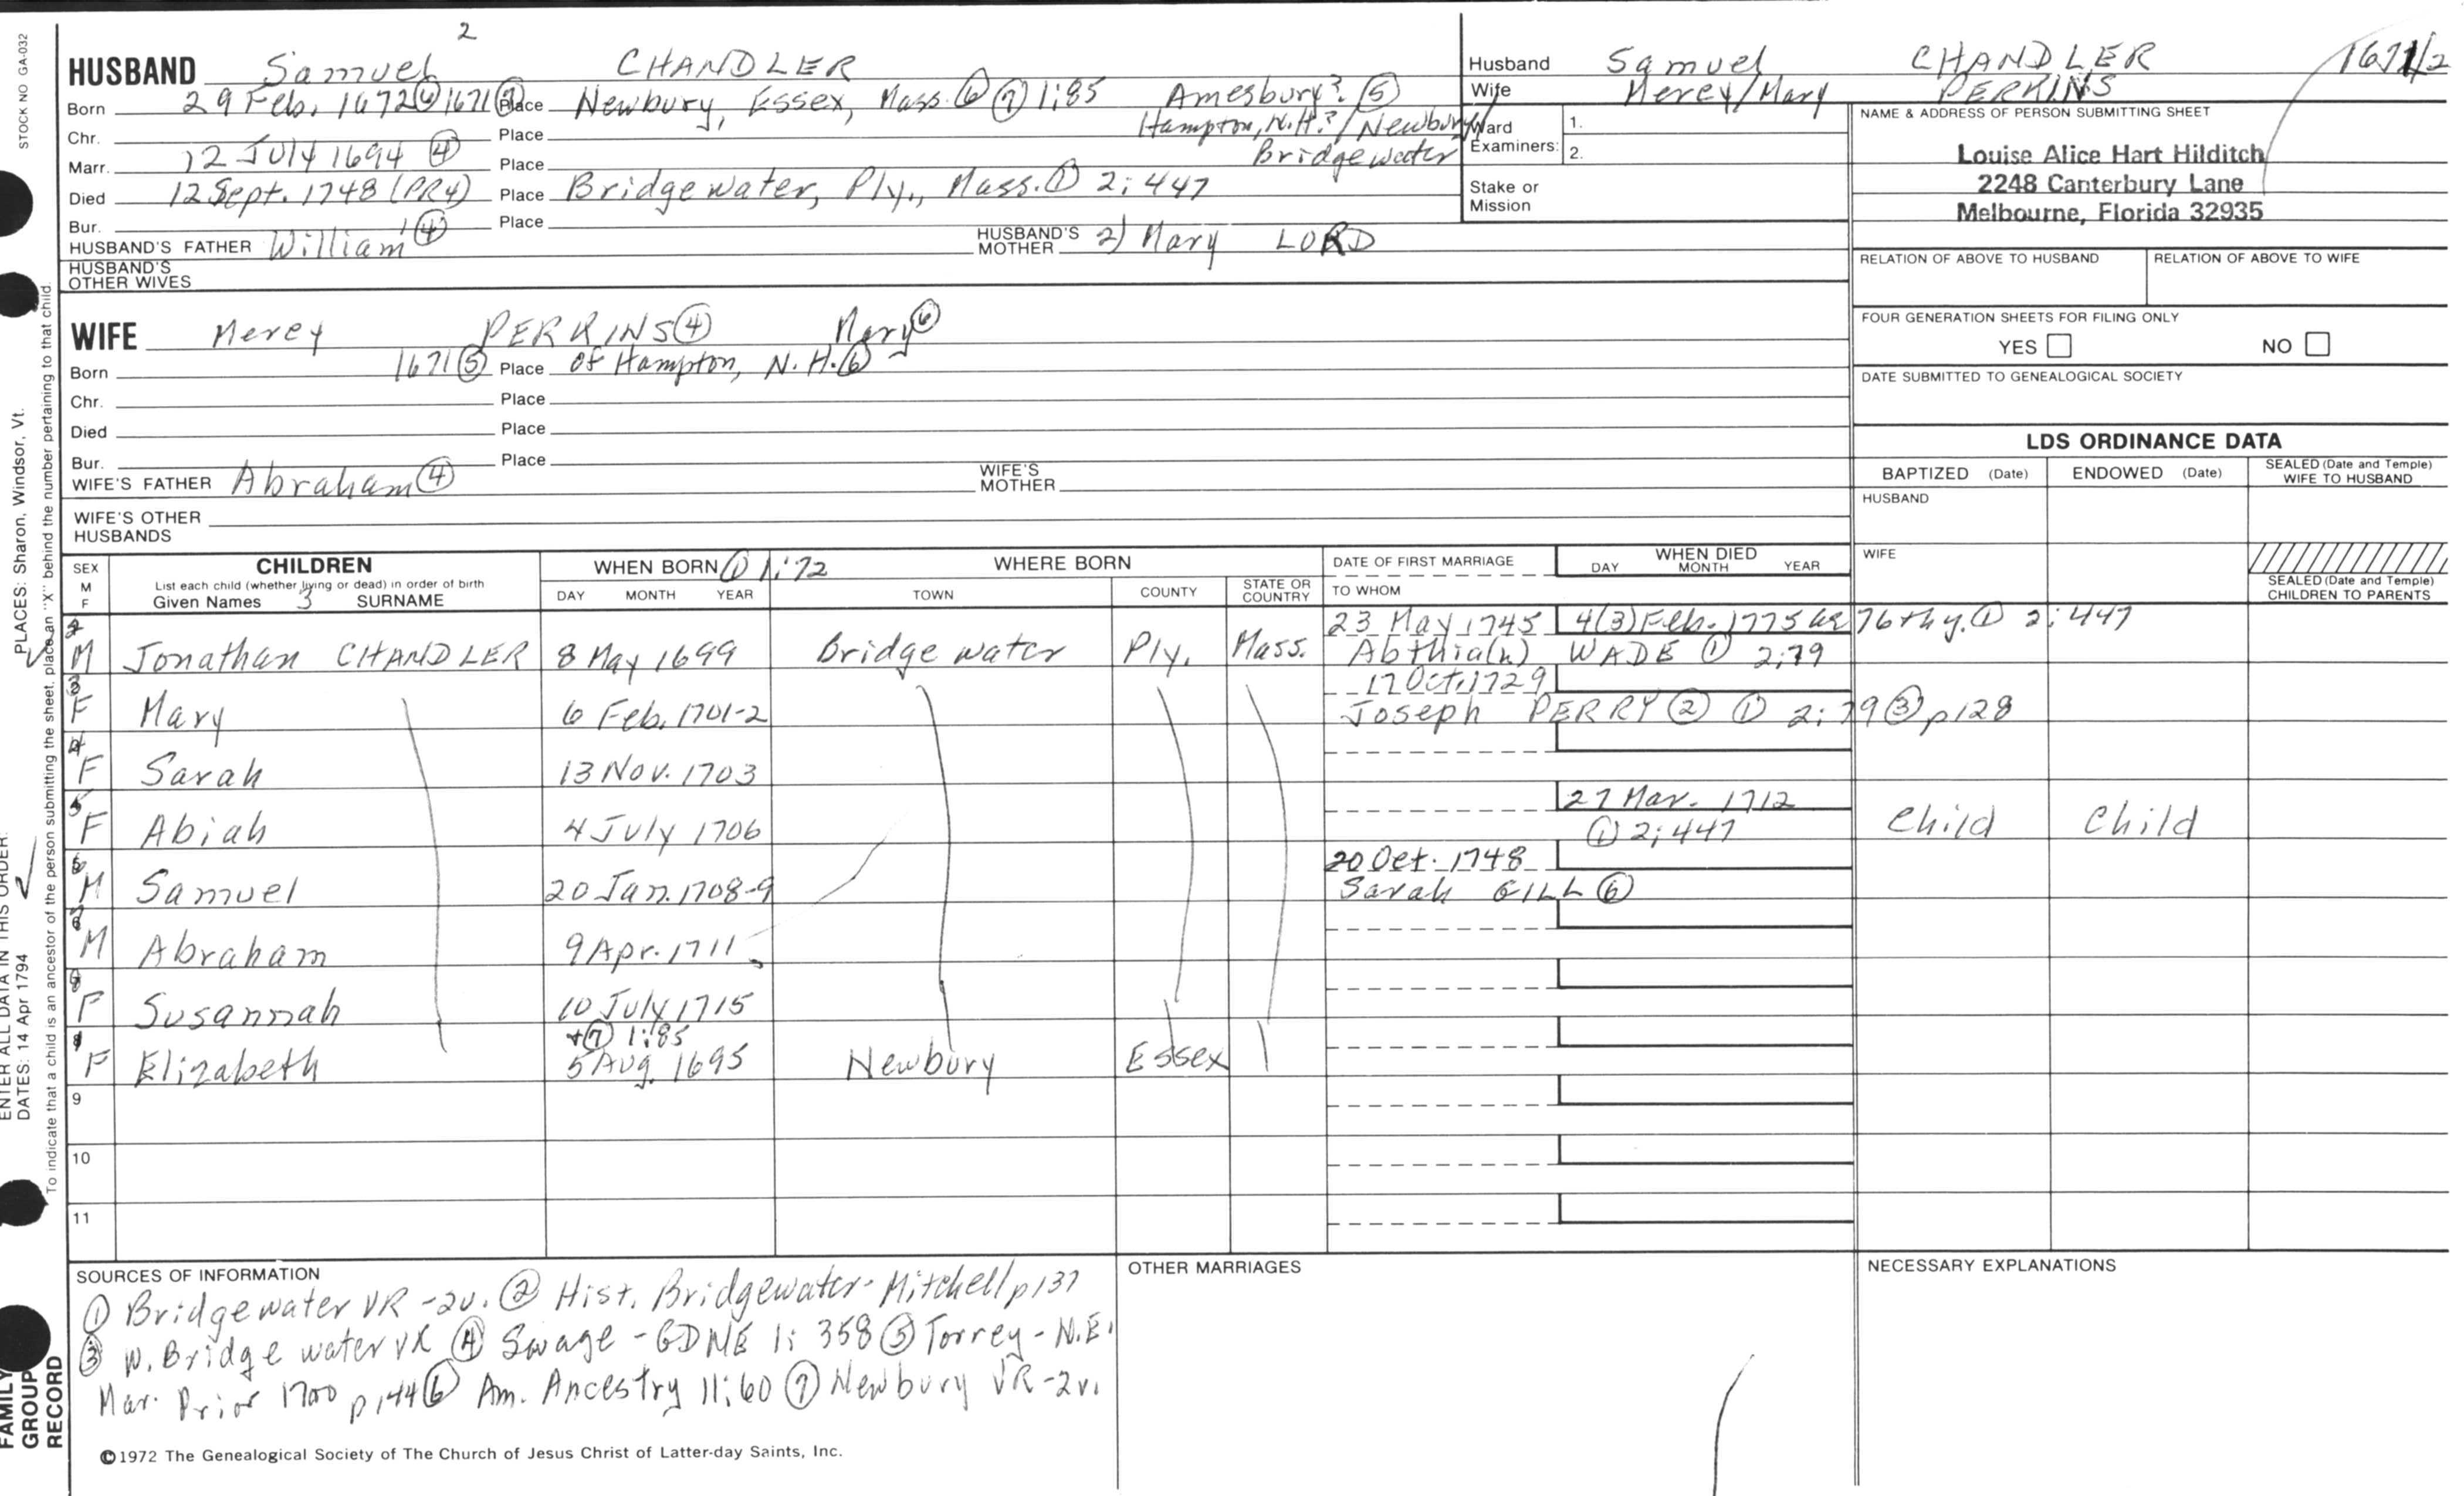 STOCK NO GA-032
2
HUSBAND Samuel CHANDLER
Born 29 Feb. 1672 ⑥ 1671 ⑦ Place Newbury, Essex, Mass. ⑥ ⑦ 1:85 Amesbury? ⑤
Chr. Place Hampton, N.H.? / Newbury/
Marr. 12 July 1694 ④ Place Bridgewater
Died 12 Sept. 1748 (PR4) Place Bridgewater, Ply., Mass. ① 2:447
Bur. Place
HUSBAND'S FATHER William 1 ④ HUSBAND'S MOTHER 2) Mary LORD
HUSBAND'S OTHER WIVES
WIFE Mercy PERKINS ④ Mary ⑥
Born 1671 ⑤ Place of Hampton, N.H. ⑥
Chr. Place
Died Place
Bur. Place
WIFE'S FATHER Abraham ④ WIFE'S MOTHER
WIFE'S OTHER HUSBANDS
Husband Samuel CHANDLER 1671/2
Wife Mercy/Mary PERKINS
Ward Examiners: 1.
2.
Stake or Mission
NAME & ADDRESS OF PERSON SUBMITTING SHEET
Louise Alice Hart Hilditch
2248 Canterbury Lane
Melbourne, Florida 32935
RELATION OF ABOVE TO HUSBAND RELATION OF ABOVE TO WIFE
FOUR GENERATION SHEETS FOR FILING ONLY
YES NO
DATE SUBMITTED TO GENEALOGICAL SOCIETY
LDS ORDINANCE DATA
BAPTIZED (Date) ENDOWED (Date) SEALED (Date and Temple) WIFE TO HUSBAND
HUSBAND
WIFE
SEALED (Date and Temple) CHILDREN TO PARENTS
SEX M F CHILDREN List each child (whether living or dead) in order of birth Given Names 3 SURNAME
WHEN BORN ① 1:72 DAY MONTH YEAR
WHERE BORN TOWN COUNTY STATE OR COUNTRY
DATE OF FIRST MARRIAGE TO WHOM
WHEN DIED DAY MONTH YEAR
2 23 May 1745 4(3) Feb. 1775 ae 76th y. ① 2:447
M Jonathan CHANDLER 8 May 1699 Bridgewater Ply. Mass. Abthia(h) WADE ① 2:79
3 17 Oct. 1729
F Mary 6 Feb. 1701-2 Joseph PERRY ② ① 2:79 ③ p128
4
F Sarah 13 Nov. 1703
5 27 Mar. 1712
F Abiah 4 July 1706 ① 2:447 Child Child
6 20 Oct. 1748
M Samuel 20 Jan. 1708-9 Sarah GILL ⑥
7
M Abraham 9 Apr. 1711
8
F Susannah 10 July 1715
1 + ⑦ 1:85
F Elizabeth 5 Aug. 1695 Newbury Essex
9
10
11
SOURCES OF INFORMATION
① Bridgewater VR -2v. ② Hist. Bridgewater-Mitchell p137
③ W. Bridgewater VR ④ Savage - GDNE 1:358 ⑤ Torrey - N.E.
Mar. Prior 1700 p144 ⑥ Am. Ancestry 11:60 ⑦ Newbury VR -2v.
OTHER MARRIAGES
NECESSARY EXPLANATIONS
©1972 The Genealogical Society of The Church of Jesus Christ of Latter-day Saints, Inc.
FAMILY GROUP RECORD
ENTER ALL DATA IN THIS ORDER:
DATES: 14 Apr 1794
PLACES: Sharon, Windsor, Vt.
To indicate that a child is an ancestor of the person submitting the sheet, place an "X" behind the number pertaining to that child.